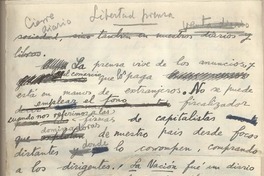 Cierre diario
Libertad prensa
sociedad, sino también en nuestros diarios y
libros.
La prensa vive de los anuncios, y
el comercio que la paga
está en manos de extranjeros. No se puede
emplear el tono fiscalizador
cuando nos referimos a las firmas de capitalistas
de nuestro país desde focos
distantes donde lo corrompen, comprando
a los dirigentes. La Nación fué un diario